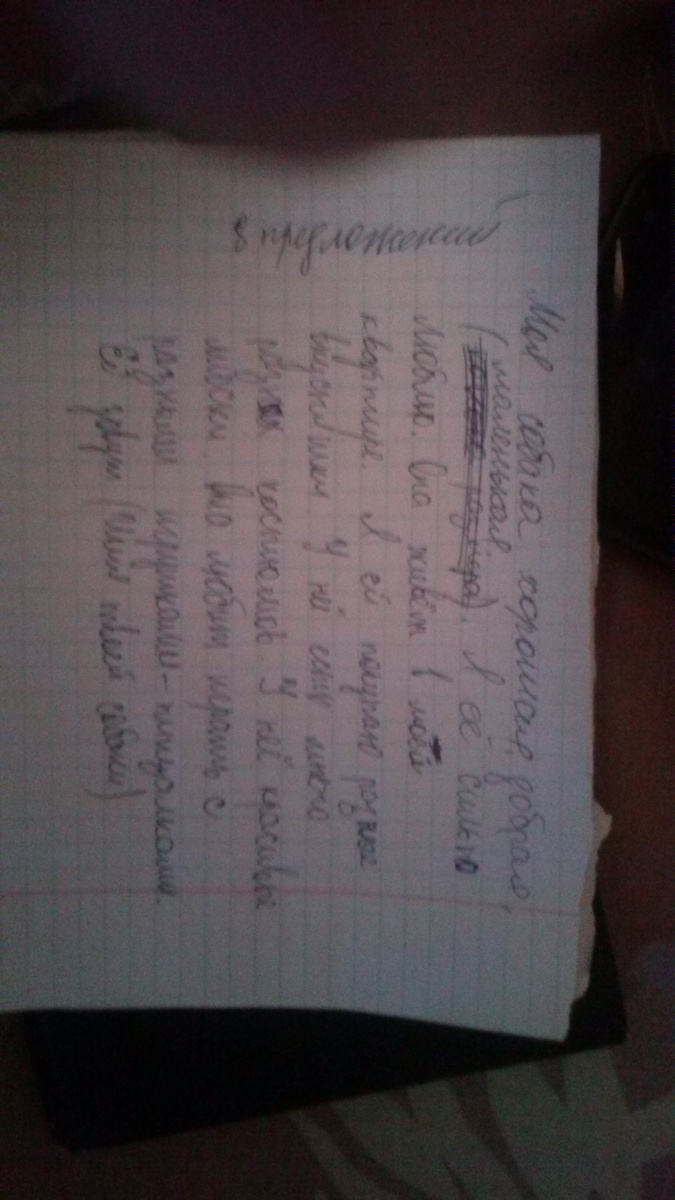 8 предложений
Моя собака хорошая, добрая,
(маленькая.
. Я её сильно
люблю. Она живёт в моей
квартире. Я ей покупаю разные
вкусняшки У неё есть много
разных костюмов. У неё красивые
миски. Она любит играть с
разными игрушками-пищалками.
Её зовут (Имя твоей собаки)